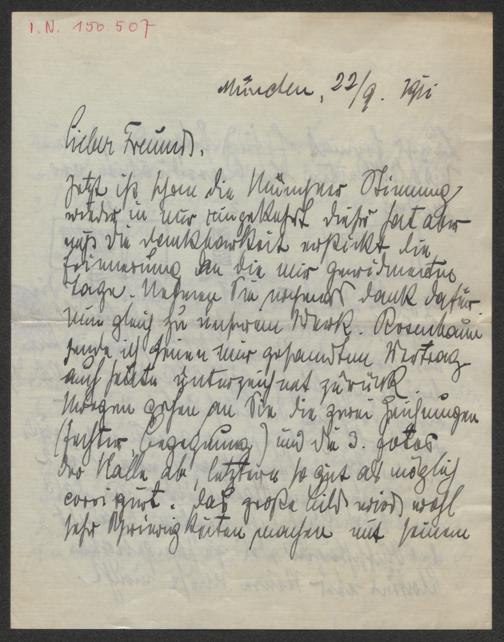 I.N. 150.507
München, 22/9. 1911
Lieber Freund.
Jetzt ist schon die Münchner Stimmung
wieder in mir eingekehrt dieses hat aber
nicht die Dankbarkeit erstickt die
Erinnerung an die mir gewidmeten
Tage. Nehmen Sie nochmals Dank dafür
Nun gleich zu unserem Werk. Rosenbaum
sende ich seinen mir gesandten Vertrag
auch heute unterzeichnet zurück.
Morgen gehen an Sie die zwei Zeichnungen
(Fechter, Begegnung) und die 3. Fotos
der Halle ab, letztere so gut als möglich
corrigirt. Das große Bild wird wohl
sehr Schwierigkeiten machen mit seinem